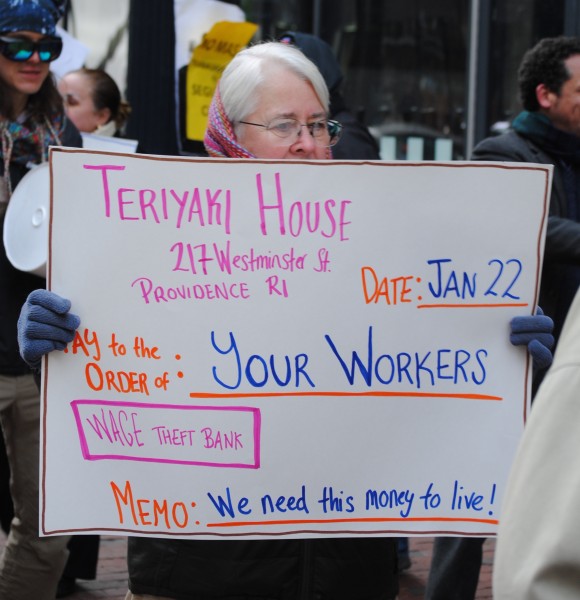 TERIYAKI HOUSE
217 Westminster St.
PROVIDENCE RI
DATE: JAN 22
PAY to the
ORDER of :
YOUR WORKERS
WAGE THEFT BANK
MEMO: We need this money to live!